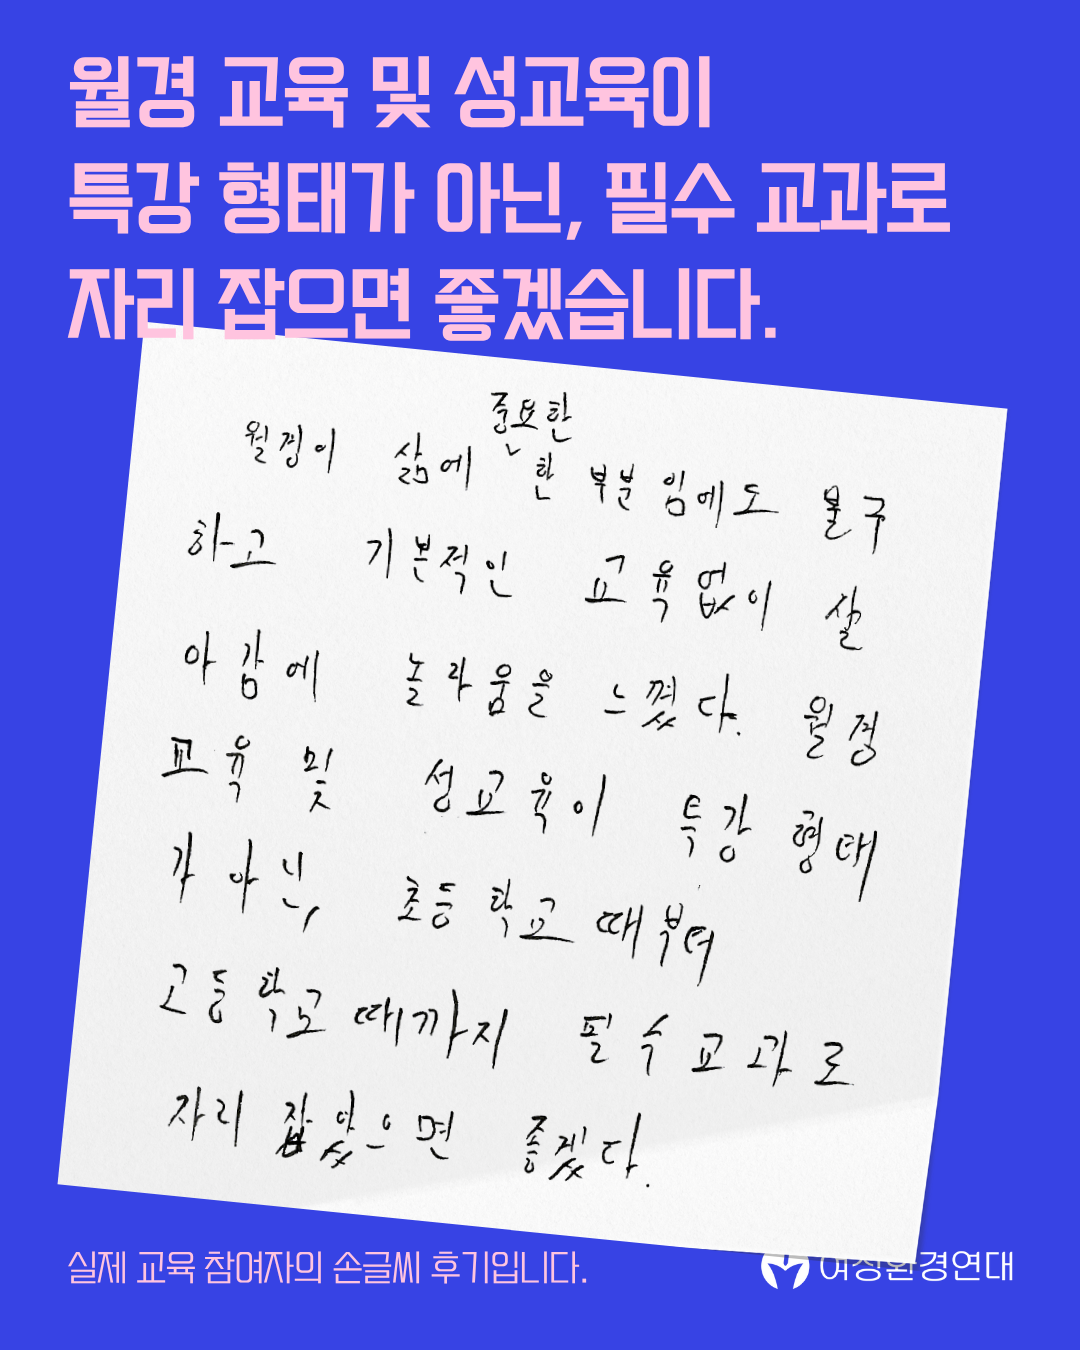 월경 교육 및 성교육이
특강 형태가 아닌, 필수 교과로
자리 잡으면 좋겠습니다.
중요한
월경이 삶에 한 부분임에도 불구
하고 기본적인 교육없이 살
아감에 놀라움을 느꼈다. 월경
교육 및 성교육이 특강 형태
가 아닌, 초등학교 때부터
고등학교 때까지 필수교과로
자리 잡았으면 좋겠다.
실제 교육 참여자의 손글씨 후기입니다.
여성환경연대